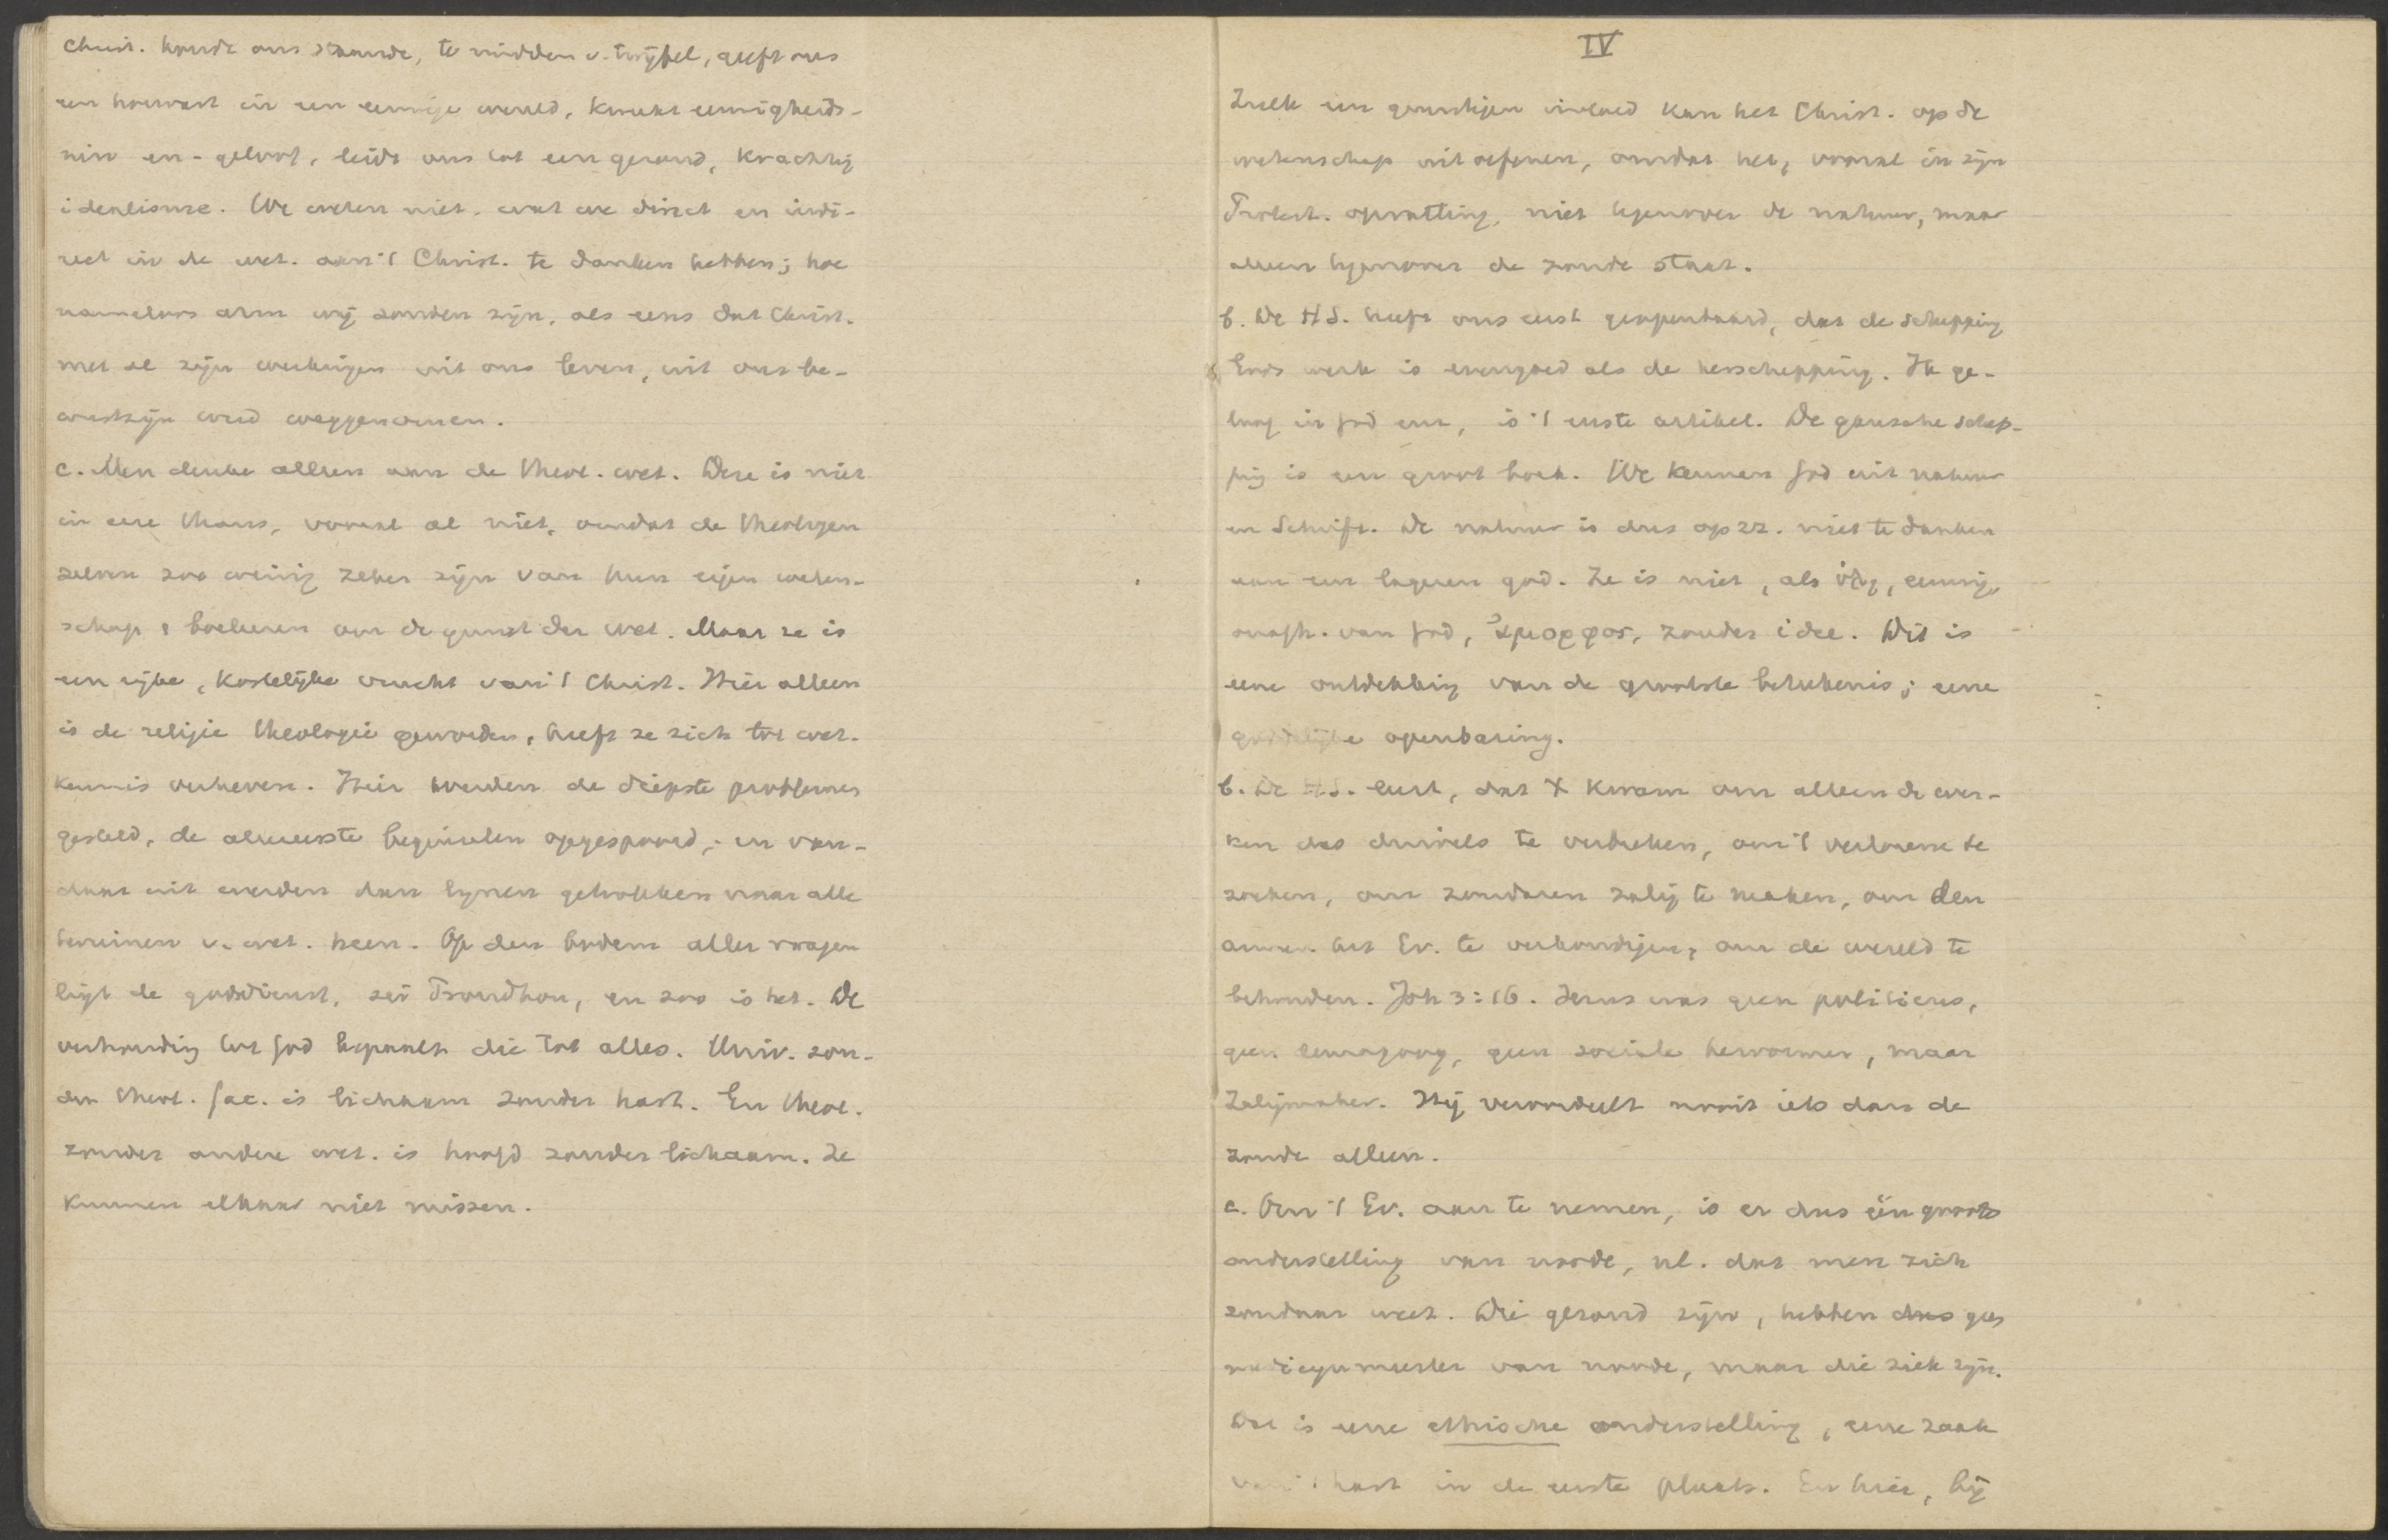 Christ. houdt ons staande, te midden v. twijfel, geeft ons
een houvast in een eeuwige wereld, kweekt eeuwigheids-
zin en -geloof, leidt ons tot een gezond, krachtig
idealisme. We weten niet, wat we direct en indi-
rect in de wet. aan 't Christ. te danken hebben; hoe
nameloos arm wij zouden zijn, als eens dat Christ.
met al zijn werkingen uit ons leven, uit ons be-
wustzijn werd weggenomen.
c. Men denke alleen aan de theol. wet. Deze is niet
in eere thans, vooral al niet, omdat de theologen
zelven zoo weinig zeker zijn van hun eigen weten-
schap & boeleeren om de gunst der wet. Maar ze is
een rijke, kostelijke vrucht van 't Christ. Hier alleen
is de religie theologie geworden, heeft ze zich tot wet.
kennis verheven. Hier werden de diepste problemen
gesteld, de allereerste beginselen opgespoord, en van-
daar uit werden dan lijnen getrokken naar alle
terreinen v. wet. heen. Op den bodem aller vragen
ligt de godsdienst, zei Proudhon, en zoo is het. De
verhouding tot God bepaalt die tot alles. Univ. zon-
der theol. fac. is lichaam zonder hart. En theol.
zonder andere wet. is hoofd zonder lichaam. Ze
kunnen elkaar niet missen.
IV
Zulk een gunstigen invloed kan het Christ. op de
wetenschap uitoefenen, omdat het, vooral in zijn
Protest. opvatting, niet tegenover de natuur, maar
alleen tegenover de zonde staat.
b. De H S. heeft ons eerst geopenbaard, dat de schepping
Gods werk is evengoed als de herschepping. Ik ge-
loof in God enz., is 't eerste artikel. De gansche schep-
ping is een groot boek. We kennen God uit natuur
en Schrift. De natuur is dus op zz. niet te danken
aan een lageren god. Ze is niet, als ὕλη, eeuwig,
onafh. van God, ἄμορφος, zonder idee. Dit is
eene ontdekking van de grootste beteekenis; eene
goddelijke openbaring.
b. De H.S. leert, dat X kwam om alleen de wer-
ken des duivels te verbreken, om 't verlorene te
zoeken, om zondaren zalig te maken, om den
armen het Ev. te verkondigen, om de wereld te
behouden. Joh 3:16. Jezus was geen politicus,
geen demagoog, geen sociale hervormer, maar
Zaligmaker. Hij veroordeelt nooit iets dan de
zonde alleen.
c. Om 't Ev. aan te nemen, is er dus één groote
onderstelling van noode, nl. dat men zich
zondaar weet. Die gezond zijn, hebben dus geen
medicijnmeester van noode, maar die ziek zijn.
Dat is eene ethische onderstelling, eene zaak
van 't hart in de eerste plaats. En hier, bij